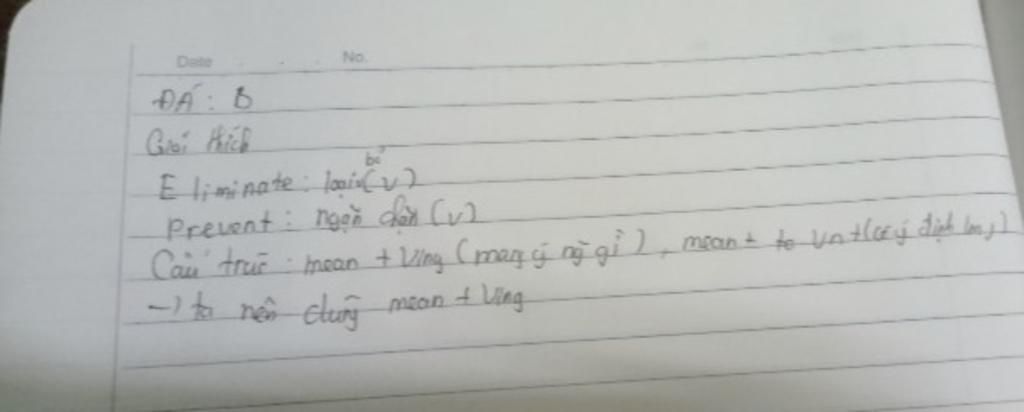 Date No.
ĐÁ: B
Giải thích
Eliminate: loại bỏ (v)
Prevent: ngăn chặn (v)
Cấu trúc: mean + Ving (mang ý ng gì), mean + to Vnt (có ý định)
→ ta nên dùng mean + Ving